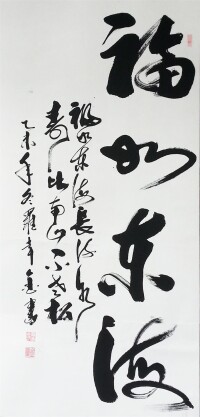 福如东海
福如东海长流水
寿比南山不老松
乙未年冬罗幸金书